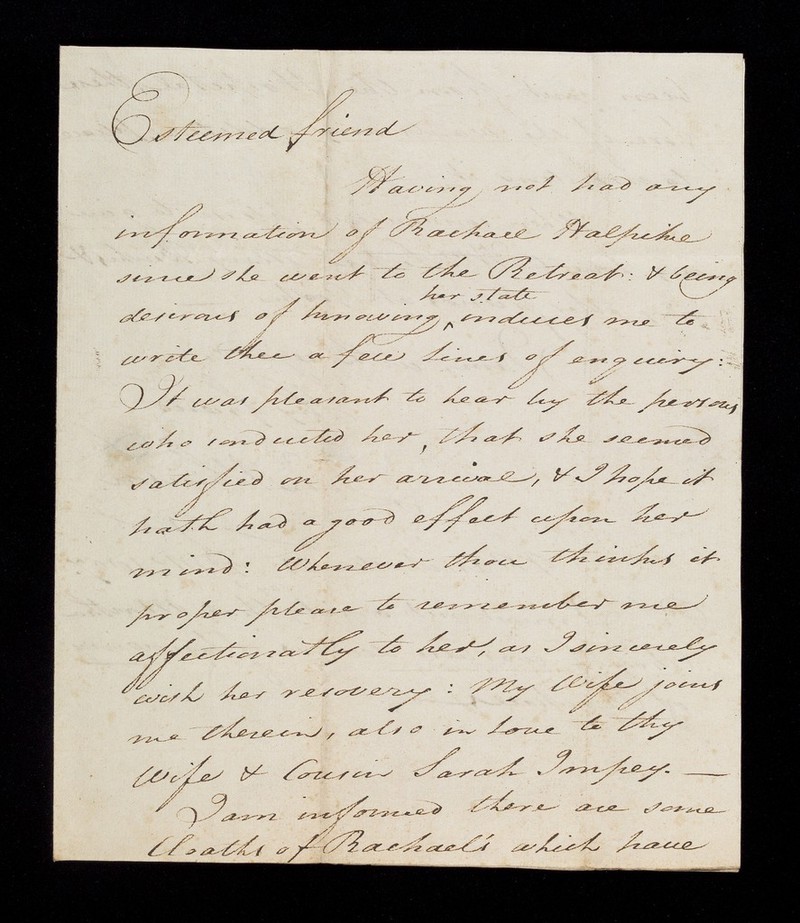 Esteemed friend
Having not had any
information of Rachael Halpike
since she went to the Retreat: & being
her state
desirous of knowing ‸ induces me to
write thee a few lines of enquiry:
It was pleasant to hear by the persons
who conducted her, that she seemed
satisfied on her arrival, & I hope it
hath had a good effect upon her
mind: Whenever thou thinks it
proper please to remember me
affectionatly to her, as I sincerely
wish her recovery: My Wife joins
me therein, also in Love to thy
Wife & Cousin Sarah Impey. —
I am informed there are some
Cloaths of Rachael's which have